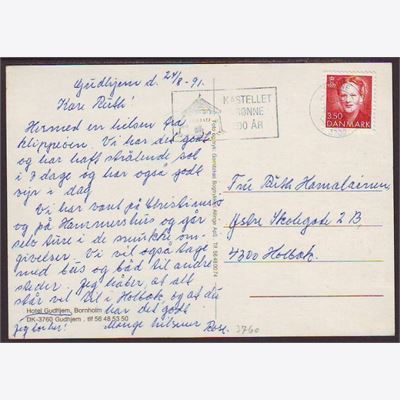 Gudhjem d. 24/8-91.
Kære Ruth!
Hermed en hilsen fra
klippeøen. Vi har det godt
og har haft strålende sol
i 7 dage og har også godt
vejr i dag
Vi har været på Christiansø
og på Hammershus og går
selv ture i de smukke om-
givelser. Vi vil også tage
med bus og båd til andre
steder. Jeg håber, at alt
står vel til i Holbæk, og at du
har det godt
Mange hilsner
Hotel Gudhjem, Bornholm
DK-3760 Gudhjem . tlf 56 48 53 50
KASTELLET
RØNNE
ÅR
3.50
DANMARK
Fru Ruth Hamalainen
Østre Skolegade 2 B,
4300 Holbæk.
3760